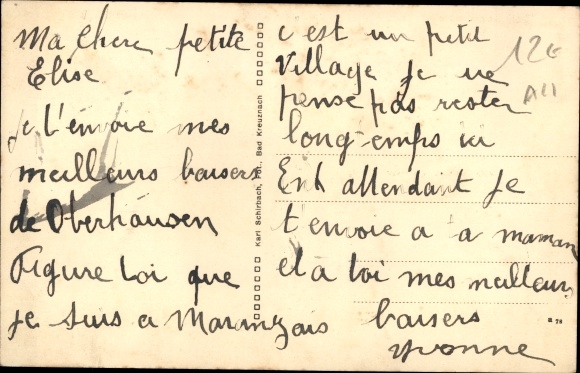 Ma chere petite
Elise
Je t'envoie mes
meilleurs baisers
de Oberhausen
Figure toi que
je suis a
Karl Schirbach, Fot., Bad Kreuznach
c'est un petit
village je ne
pense pas rester
longtemps ici
Ent attendant je
t'envoie a ta maman
et a toi mes meilleurs
baisers
Yvonne
12€